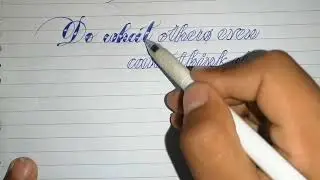 Do what others even
can't think